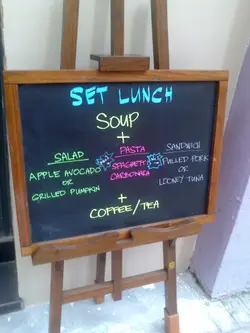 SET LUNCH
SOUP
+
SALAD
APPLE AVOCADO
OR
GRILLED PUMPKIN
PASTA
SPAGHETTI
CARBONARA
SANDWICH
PULLED PORK
OR
LOONEY TUNA
+
COFFEE/TEA